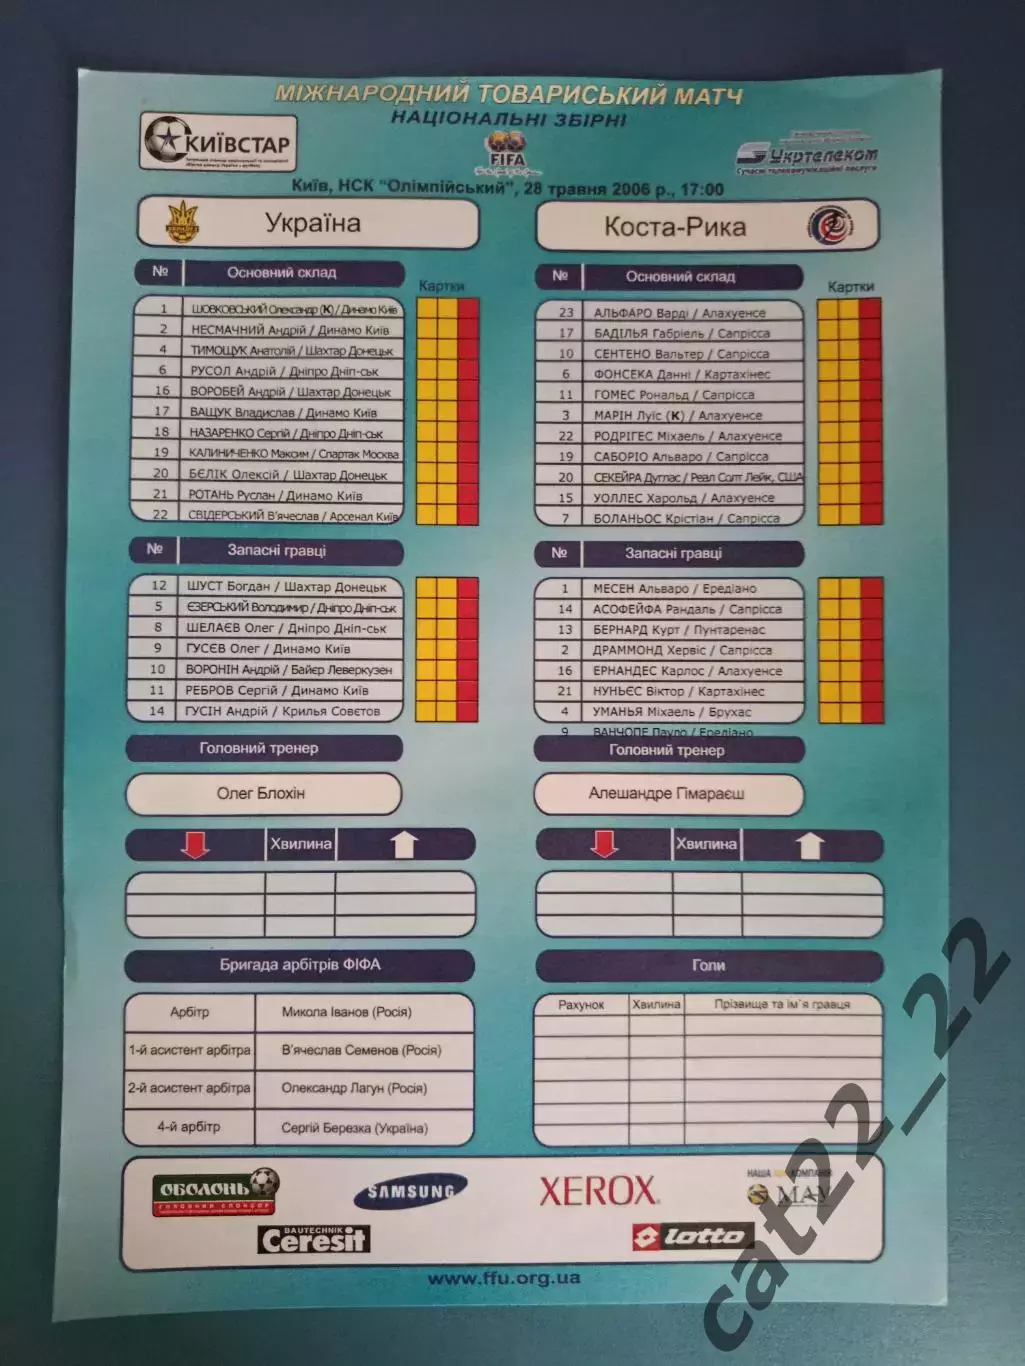 МІЖНАРОДНИЙ ТОВАРИСЬКИЙ МАТЧ
НАЦІОНАЛЬНІ ЗБІРНІ
КИЇВСТАР
FIFA
Укртелеком
Сучасні телекомунікаційні послуги
Київ, НСК "Олімпійський", 28 травня 2006 р., 17:00
Україна
№ Основний склад
Картки
1 ШОВКОВСЬКИЙ Олександр (К) / Динамо Київ
2 НЕСМАЧНИЙ Андрій / Динамо Київ
4 ТИМОЩУК Анатолій / Шахтар Донецьк
6 РУСОЛ Андрій / Дніпро Дніп-ськ
16 ВОРОБЕЙ Андрій / Шахтар Донецьк
17 ВАЩУК Владислав / Динамо Київ
18 НАЗАРЕНКО Сергій / Дніпро Дніп-ськ
19 КАЛИНИЧЕНКО Максим / Спартак Москва
20 БЄЛІК Олексій / Шахтар Донецьк
21 РОТАНЬ Руслан / Динамо Київ
22 СВІДЕРСЬКИЙ В'ячеслав / Арсенал Київ
№ Запасні гравці
12 ШУСТ Богдан / Шахтар Донецьк
5 ЄЗЕРСЬКИЙ Володимир / Дніпро Дніп-ськ
8 ШЕЛАЄВ Олег / Дніпро Дніп-ськ
9 ГУСЄВ Олег / Динамо Київ
10 ВОРОНІН Андрій / Байєр Леверкузен
11 РЕБРОВ Сергій / Динамо Київ
14 ГУСІН Андрій / Крилья Совєтов
Головний тренер
Олег Блохін
Хвилина
Бригада арбітрів ФІФА
Арбітр Микола Іванов (Росія)
1-й асистент арбітра В'ячеслав Семенов (Росія)
2-й асистент арбітра Олександр Лагун (Росія)
4-й арбітр Сергій Березка (Україна)
Коста-Рика
№ Основний склад
Картки
23 АЛЬФАРО Варді / Алахуенсе
17 БАДІЛЬЯ Габріель / Сапрісса
10 СЕНТЕНО Вальтер / Сапрісса
6 ФОНСЕКА Данні / Картахінес
11 ГОМЕС Рональд / Сапрісса
3 МАРІН Луїс (К) / Алахуенсе
22 РОДРІГЕС Міхаель / Алахуенсе
19 САБОРІО Альваро / Сапрісса
20 СЕКЕЙРА Дуглас / Реал Солт Лейк, США
15 УОЛЛЕС Харольд / Алахуенсе
7 БОЛАНЬОС Крістіан / Сапрісса
№ Запасні гравці
1 МЕСЕН Альваро / Ередіано
14 АСОФЕЙФА Рандаль / Сапрісса
13 БЕРНАРД Курт / Пунтаренас
2 ДРАММОНД Хервіс / Сапрісса
16 ЕРНАНДЕС Карлос / Алахуенсе
21 НУНЬЄС Віктор / Картахінес
4 УМАНЬЯ Міхаель / Брухас
9 ВАНЧОПЕ Пауло / Ередіано
Головний тренер
Алешандре Гімараєш
Хвилина
Голи
Рахунок Хвилина Прізвище та ім'я гравця
ОБОЛОНЬ
ГОЛОВНИЙ СПОНСОР
SAMSUNG
XEROX
НАША КОМПАНІЯ
MAY
BAUTECHNIK
Ceresit
lotto
www.ffu.org.ua
cat22_22